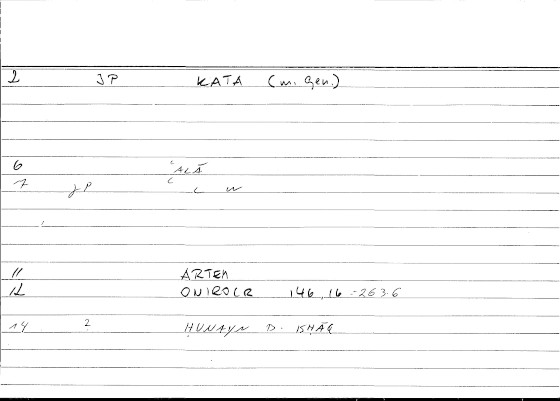 2 JP KATA (m. Gen.)
6 ʿALĀ
7 JP L W
11 ARTEM
12 ONIROCR 146,16 - 263.6
14 2 ḤUNAYN B. ISḤĀQ